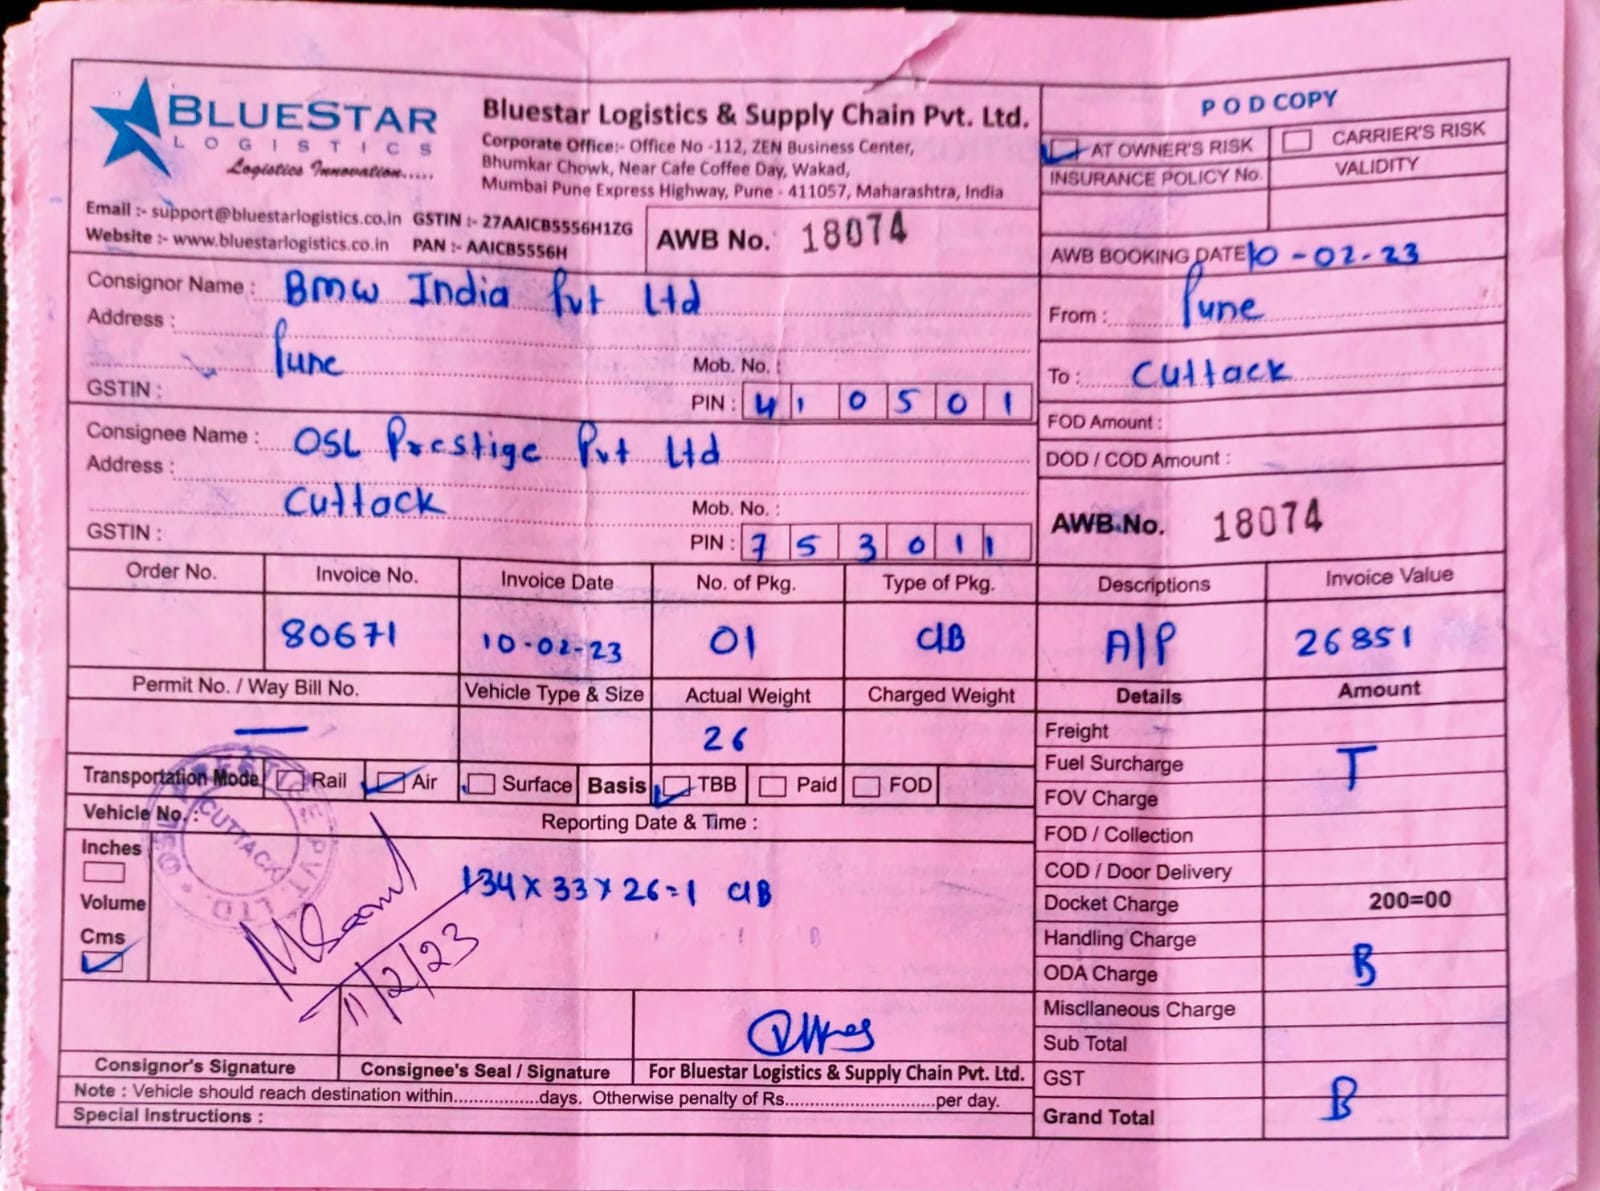 BLUESTAR
LOGISTICS
Logistics Innovation.....
Bluestar Logistics & Supply Chain Pvt. Ltd.
Corporate Office:- Office No -112, ZEN Business Center,
Bhumkar Chowk, Near Cafe Coffee Day, Wakad,
Mumbai Pune Express Highway, Pune - 411057, Maharashtra, India
Email :- support@bluestarlogistics.co.in GSTIN :- 27AAICB5556H1ZG
Website :- www.bluestarlogistics.co.in PAN :- AAICB5556H
AWB No. 18074
P O D COPY
AT OWNER'S RISK CARRIER'S RISK
INSURANCE POLICY No. VALIDITY
AWB BOOKING DATE 10-02-23
From : Pune
To : Cuttack
FOD Amount :
DOD / COD Amount :
AWB.No. 18074
Consignor Name : BMW India Pvt Ltd
Address :
Pune
Mob. No. :
GSTIN :
PIN : 410501
Consignee Name : OSL Prestige Pvt Ltd
Address :
Cuttack
Mob. No. :
GSTIN :
PIN : 753011
Order No. Invoice No. Invoice Date No. of Pkg. Type of Pkg. Descriptions Invoice Value
80671 10-02-23 01 C/B A/P 26851
Permit No. / Way Bill No. Vehicle Type & Size Actual Weight Charged Weight Details Amount
— 26
Transportation Mode Rail Air Surface Basis TBB Paid FOD
Vehicle No. : Reporting Date & Time :
Inches
Volume
Cms
134 X 33 X 26 = 1 C/B
CUTTACK
11/2/23
Freight
Fuel Surcharge T
FOV Charge
FOD / Collection
COD / Door Delivery
Docket Charge 200=00
Handling Charge
ODA Charge B
Miscllaneous Charge
Sub Total
GST
Grand Total B
Consignor's Signature Consignee's Seal / Signature For Bluestar Logistics & Supply Chain Pvt. Ltd.
Note : Vehicle should reach destination within.................days. Otherwise penalty of Rs..............................per day.
Special Instructions :